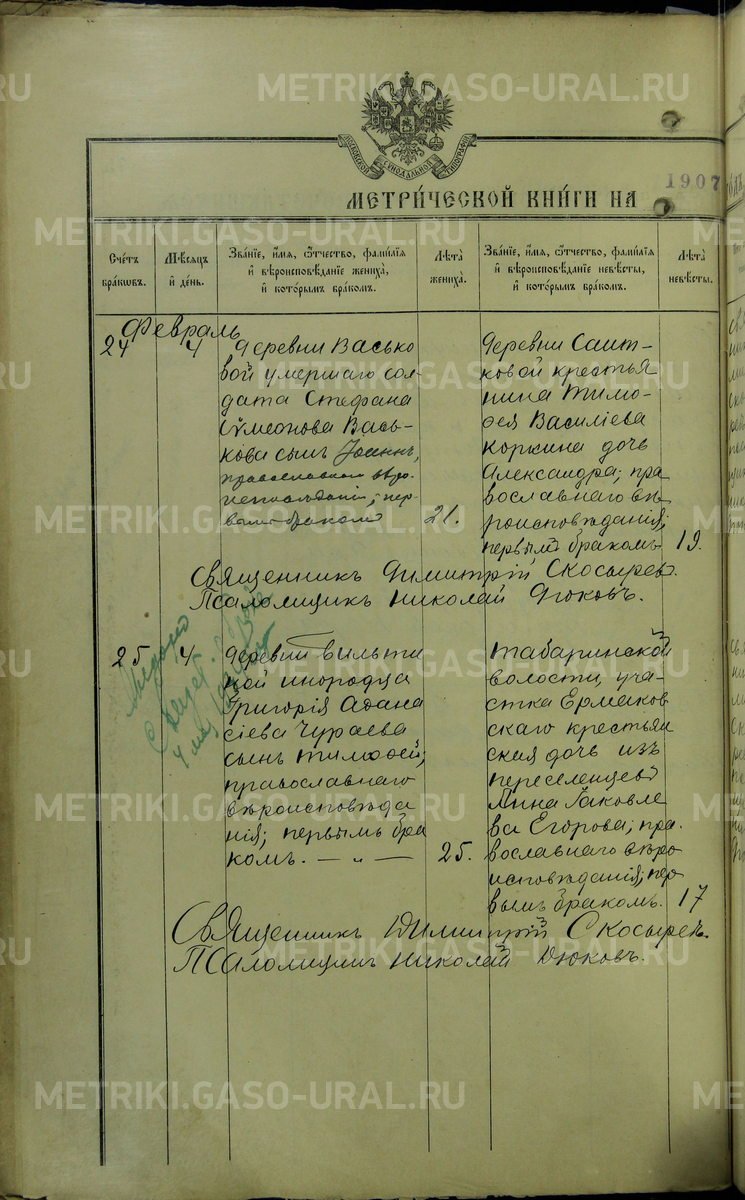 МОСКОВСКОЙ СѴНОДАЛЬНОЙ ТИПОГРАФІИ
МЕТРИ́ЧЕСКОЙ КНИ́ГИ НА 1907
Сче́тъ бра́ковъ.
Мѣ́сяцъ и҆ де́нь.
Зва́нїе, и҆́мя, ѻ҆́тчество, фами́лїя и҆ вѣроисповѣ́данїе жениха̀, и҆ кото́рымъ бра́комъ.
Лѣ́та жениха̀.
Зва́нїе, и҆́мя, ѻ҆́тчество, фами́лїя и҆ вѣроисповѣ́данїе невѣ́сты, и҆ кото́рымъ бра́комъ.
Лѣ́та невѣ́сты.
Февраль
24
4
деревни Васько
вой умершаго сол
дата Стефана
Сѵмеонова Вась-
кова сынъ Іоаннъ,
православнаго вѣро-
исповѣданія; пер-
вымъ бракомъ
21.
деревни Саит-
ковой крестья
нина Тимо-
фея Василіева
Коркина дочь
Александра; пра
вославнаго вѣ
роисповѣданія;
первымъ бракомъ
19.
Священникъ Димитрій Скосыревъ.
Псаломщикъ Николай Дюковъ.
25
4
деревни
инородца
Григорія Афана
сіева Чураева
сынъ Тимофей;
православнаго
вѣроисповѣда
нія; первымъ бра
комъ. — „ —
25.
Табаринской
волости, уча-
стка Ермаков
скаго крестьян
ская дочь изъ
переселенцевъ
Анна Іаковле
ва Егорова; пра-
вославнаго вѣро
исповѣданія; пер
вымъ бракомъ.
17
Священникъ Димитрій Скосыревъ.
Псаломщикъ Николай Дюковъ.
METRIKI.GASO-URAL.RU